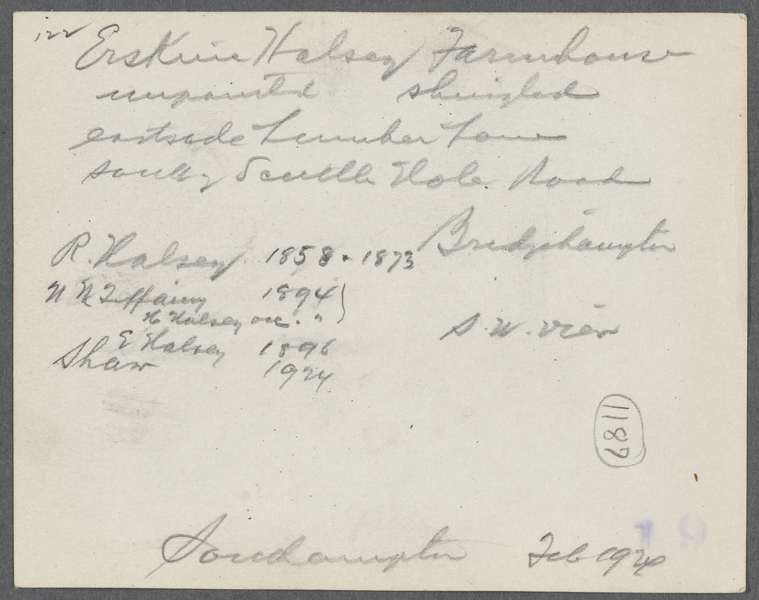 122
Erskine Halsey Farmhouse
unpainted shingled
eastside Lumber Lane
south of Scuttle Hole Road
Bridgehampton
R. Halsey 1858 - 1873
Tiffany 1894 }
H Halsey occ. "
E Halsey 1896
Shaw 1924
S. W. view
1187
Southampton Feb 1924
19